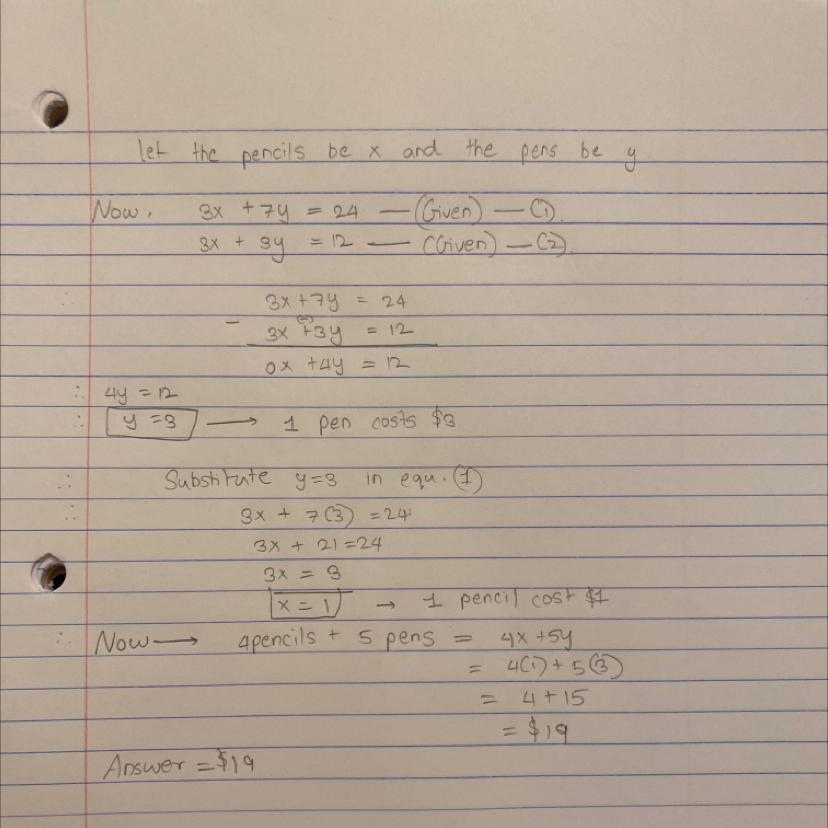 let the pencils be x and the pens be y.
Now, 3x + 7y = 24 — (Given) — (1).
3x + 3y = 12 — (Given) — (2).
∴ 3x + 7y = 24
− 3x (−)+3y = 12
0x + 4y = 12
∴ 4y = 12
∴ y = 3 → 1 pen costs $3
∴ Substitute y=3 in equ. (1)
∴ 3x + 7(3) = 24
3x + 21 = 24
3x = 3
x = 1 → 1 pencil cost $1
∴ Now → 4pencils + 5 pens = 4x + 5y
= 4(1) + 5(3)
= 4 + 15
= $19
Answer = $19